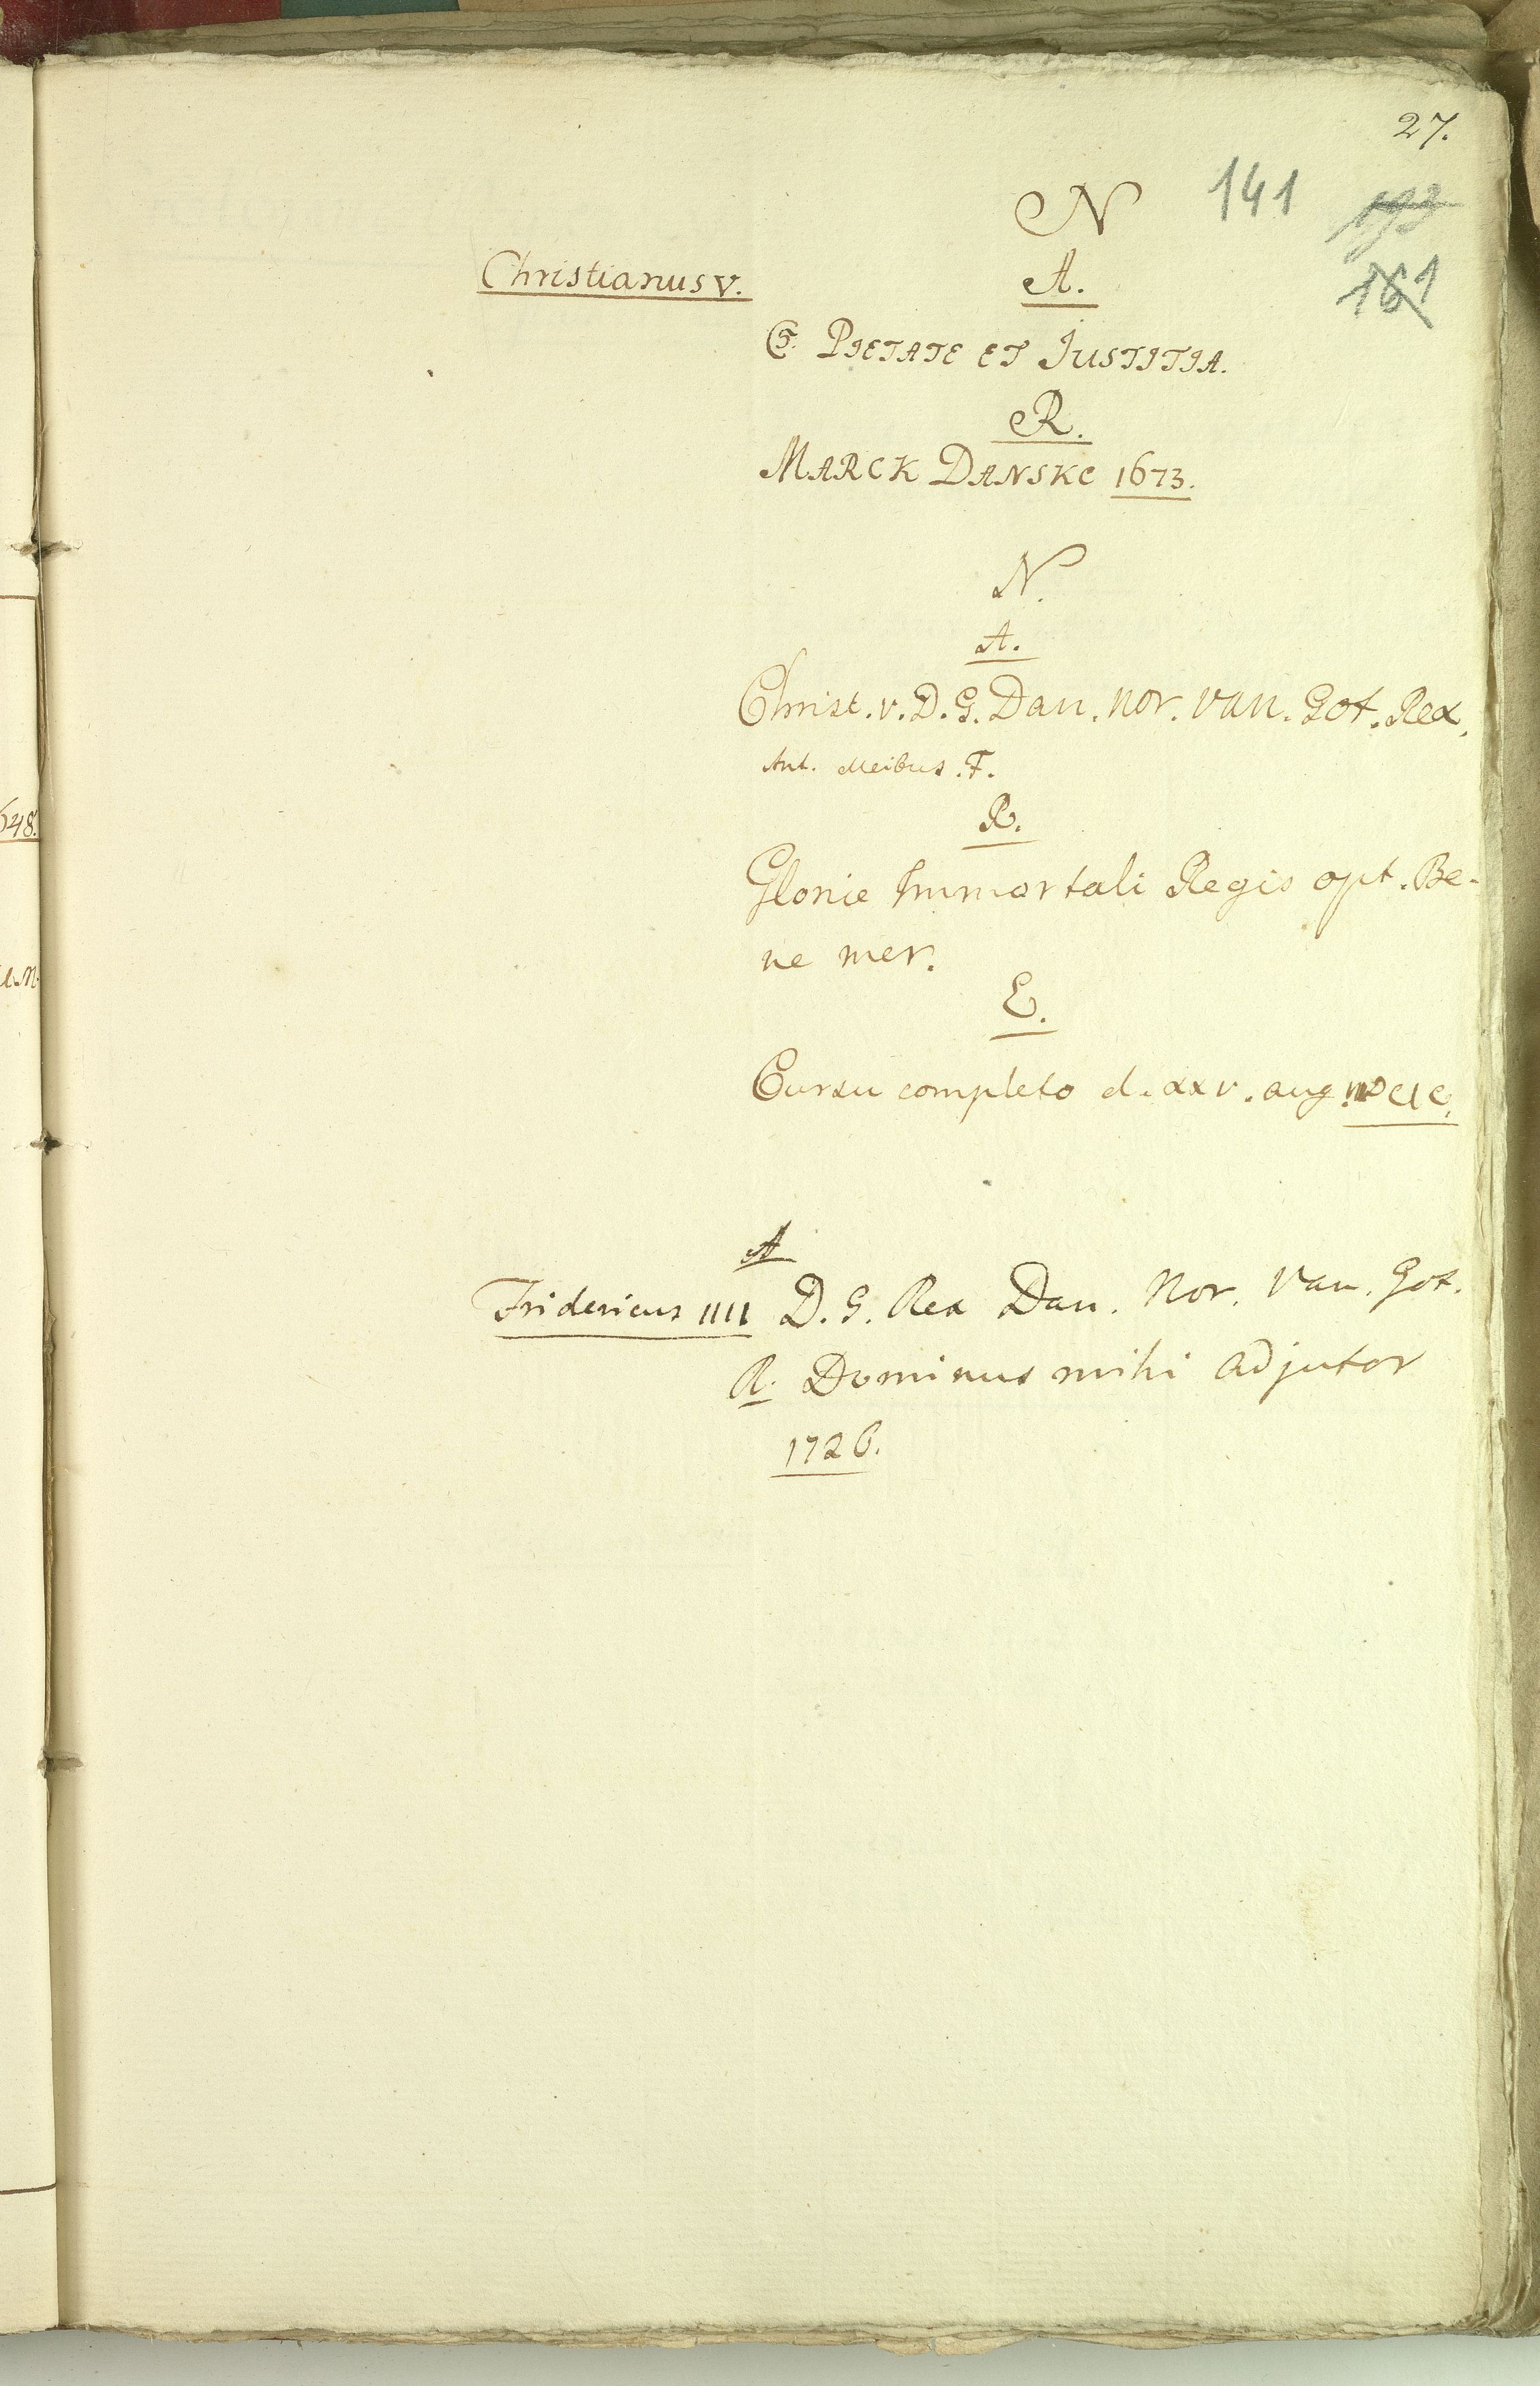 27.
N 141 193
Christianus V. A. 161
C5. PIETATE ET JUSTITIA.
R.
MARCK DANSKE 1673.
N.
A.
Christ. v. D. G. Dan. Nor. Van. Got. Rex.
Ant. Meibus. F.
648.
R.
Glorie Immortali Regis opt. Be-
ne mer.
E.
Cursu completo d. xxv. aug.
A
Fridericus IIII D. G. Rex Dan. Nor. Van. Got.
R. Dominus mihi adjutor
1726.